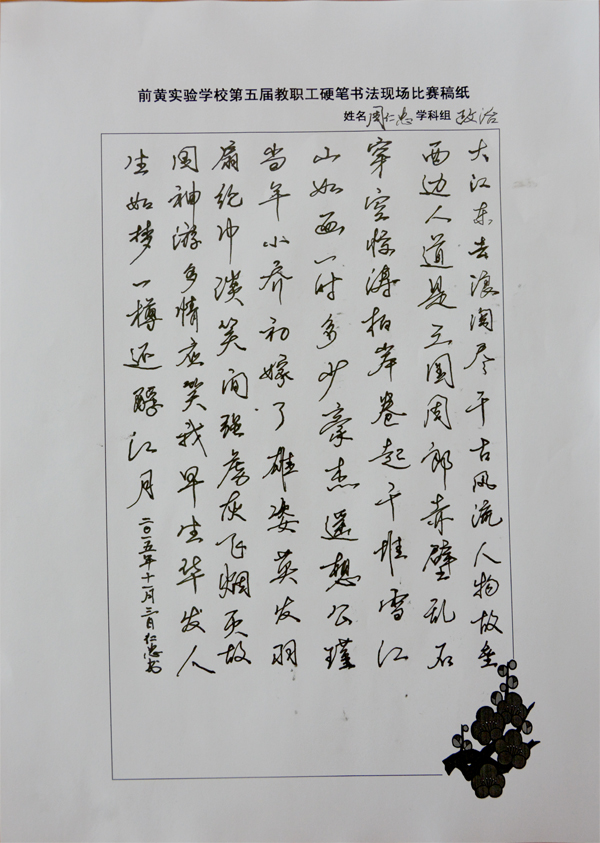 前黄实验学校第五届教职工硬笔书法现场比赛稿纸
姓名周仁忠学科组政治
大江东去浪淘尽千古风流人物故垒
西边人道是三国周郎赤壁乱石
穿空惊涛拍岸卷起千堆雪江
山如画一时多少豪杰遥想公瑾
当年小乔初嫁了雄姿英发羽
扇纶巾谈笑间强虏灰飞烟灭故
国神游多情应笑我早生华发人
生如梦一樽还酹江月
二〇一五年十一月三日仁忠书